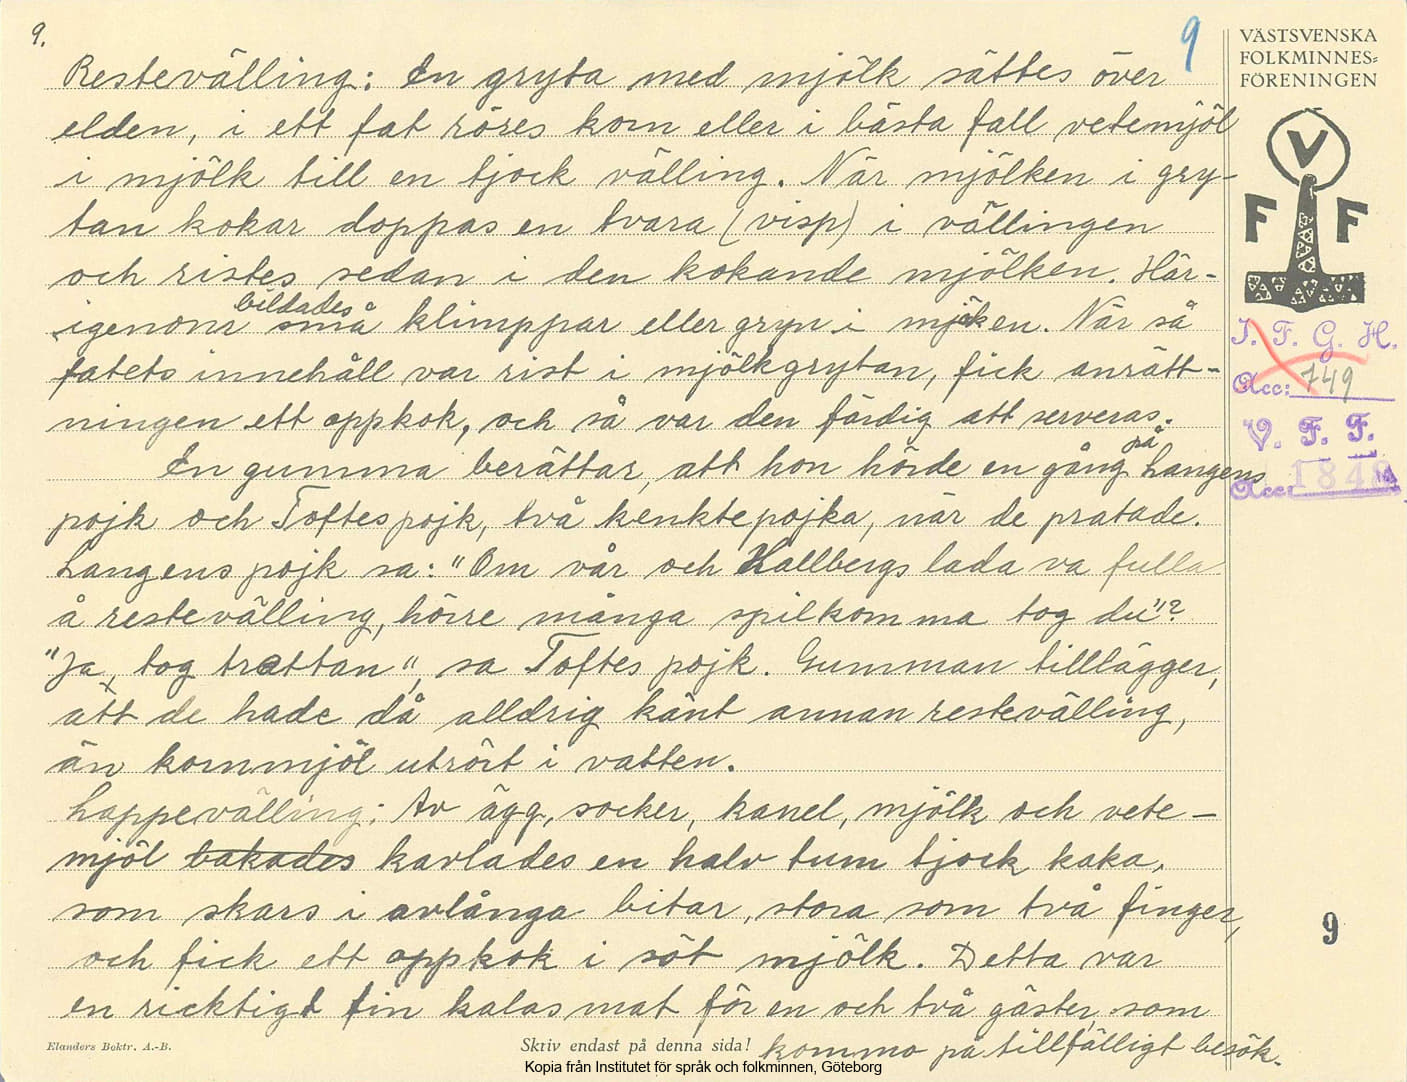 9.
9
VÄSTSVENSKA
FOLKMINNES=
FÖRENINGEN
V
F F
I. F. G. H.
Acc: 749
V. F. F.
Acc: 1848
Restevälling: En gryta med mjölk sättes över
elden, i ett fat röres korn eller i bästa fall vetemjöl
i mjölk till en tjock välling. När mjölken i gry-
tan kokar doppas en tvara (visp) i vällingen
och ristes sedan i den kokande mjölken. Här-
igenom bildades små klimppar eller gryn i mjöken. När så
fatets innehåll var rist i mjölkgrytan, fick anrätt-
ningen ett oppkok, och så var den färdig att serveras.
En gumma berättar, att hon hörde en gång på Langens
pojk och Toftes pojk, två kenktepojka, när de pratade.
Langens pojk sa: "Om vår och Hallbergs lada va fulla
å restevälling, hörre många spilkomma tog du"?
"Ja, tog trattan", sa Toftes pojk. Gumman tilllägger,
att de hade då alldrig känt annan restevälling,
än kornmjöl utrört i vatten.
Lappevälling: Av ägg, socker, kanel, mjölk och vete-
mjöl bakades kavlades en halv tum tjock kaka,
som skars i avlånga bitar, stora som två finger,
och fick ett oppkok i söt mjölk. Detta var
en ricktigt fin kalasmat för en och två gäster, som
kommo på tillfälligt besök.
9
Elanders Boktr. A.-B.
Skriv endast på denna sida!
Kopia från Institutet för språk och folkminnen, Göteborg